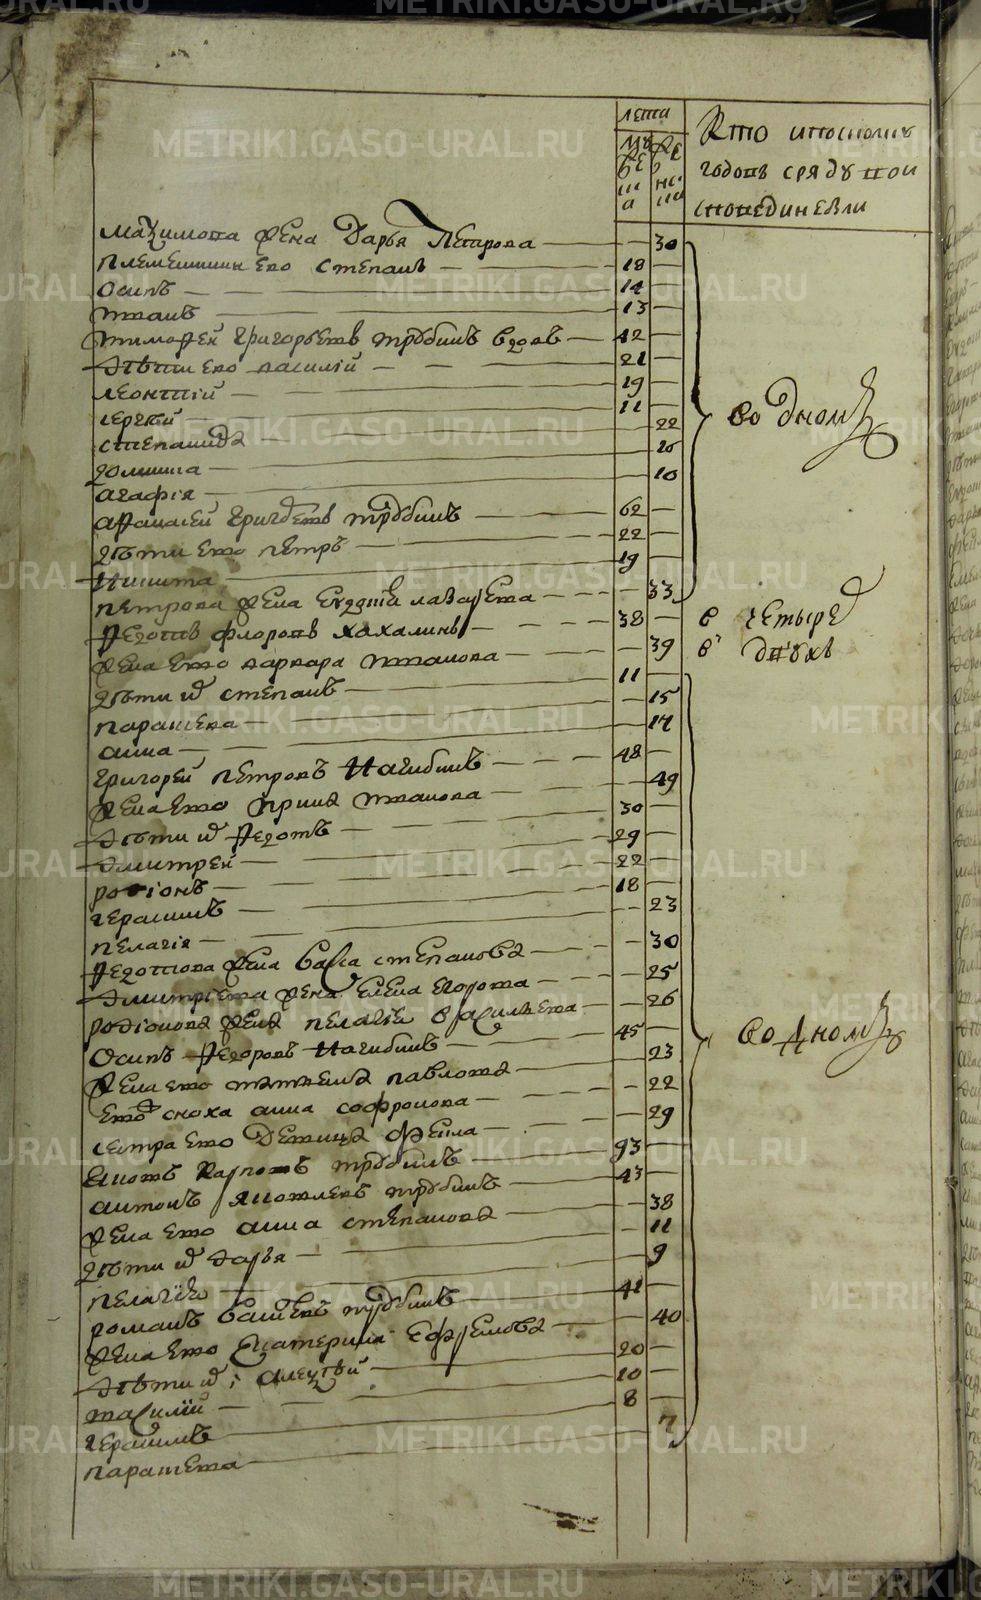 METRIKI.GASO-URAL.RU
лета
мужеска
женска
Кто и посколку
годовъ сряду во и
споведи не были
Максимова жена Дарья Петрова 30
племянники ево Степанъ 18
Осипъ 14
Иванъ 13
Тимофей Григорьевъ Трубинъ вдовъ 42
Дѣти ево Василий 21
Леонтий 19
Сергѣй 11
Степанида 22
Домнина
Агафiя 10
Афанасей Григорьевъ Трубинъ 62
дѣти ево Петръ 22
Никита 19
Петрова жена Евдокия Лазарева 33
во дномъ
Федотъ Флоровъ Хахалинъ 38
в четыре
жена ево Варвара Иванова 39
в двухъ
дѣти их Степанъ 11
Парасева 15
Анна 14
Григорей Петровъ Нагибинъ 48
жена ево Ирина Иванова 49
Дѣти их Федотъ 30
Дмитрей 29
Родiонъ 22
Герасимъ 18
Пелагiя 23
Федотова жена Васса Степанова 30
Дмитрiева жена Елена Егорова 25
Родiонова жена Пелагия Васильева 26
Осипъ Федоровъ Нагибинъ 45
жена ево Татьяна Павлова 23
Ево сноха Анна Софронова 22
сестра ево девица Фекла 29
Карповъ Трубинъ 93
Антонъ Яковлевъ Трубинъ 43
жена ево Анна Степанова 38
дѣти их Дарья 11
Пелагiя 9
Романъ Трубинъ 41
жена ево Екатерина Ефремова 40
Дѣти их Алексѣй 20
Василiй 10
Герасимъ 8
Парасева 7
во дномъ